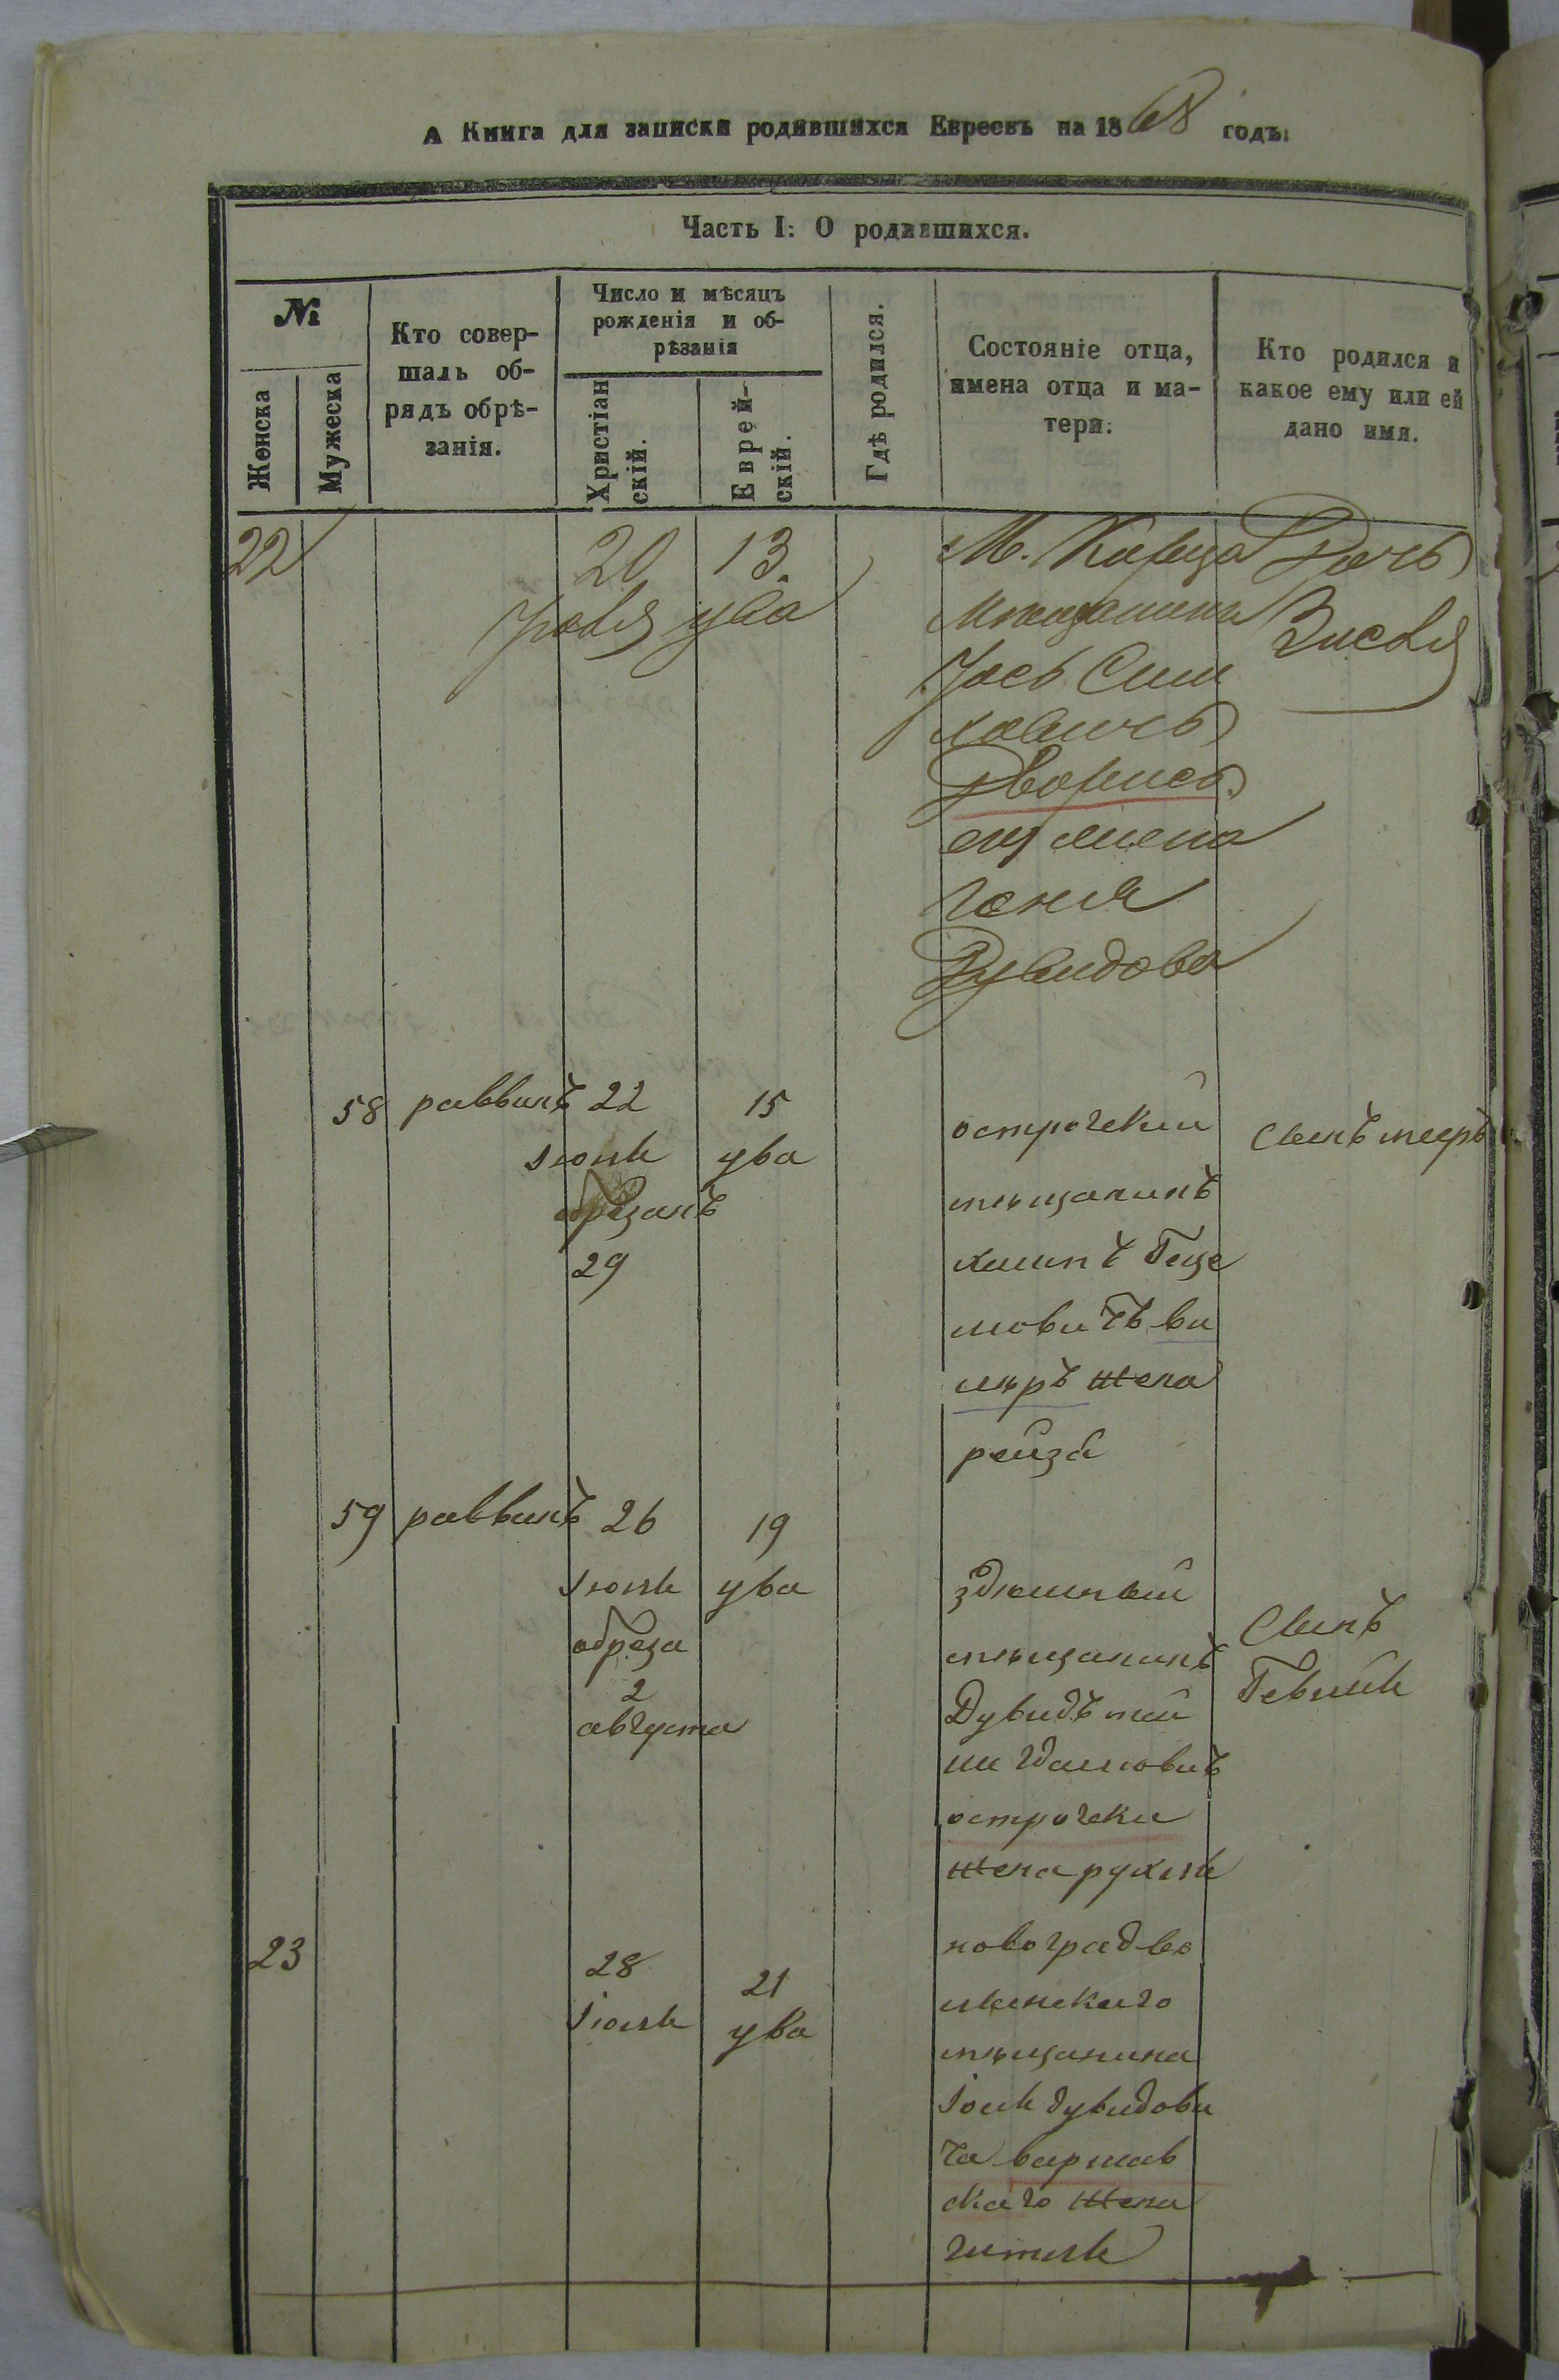 А Книга для записки родившихся Евреевъ на 1868 годъ:
Часть I: О родившихся.
№
Женска
Мужеска
Кто совер-
шалъ об-
рядъ обрѣ-
занія.
Число и мѣсяцъ
рожденія и об-
рѣзанія
Христіан
скій.
Еврей-
скій.
Гдѣ родился.
Состояніе отца,
имена отца и ма-
тери.
Кто родился и
какое ему или ей
дано имя.
22
20
13.
ува
М. Корца
мещанинъ
Іось
Дворисъ
его жена
Геня
Дувидова
Дочь
Зисля
58
раввинъ
22
Іюля
обрезанъ
29
15
ува
острогскій
мѣщанинъ
хаимъ Геце
лѣръ жена
рейза
Сынъ мееръ
59
раввинъ
26
Іюля
обреза
2
августа
19
ува
мѣщанинъ
Дувидъ
острогски
жена рухля
Сынъ
23
28
Іюля
21
ува
новоградво
лынскаго
мѣщанина
дувидови
ча варшав
скаго жена
гитля